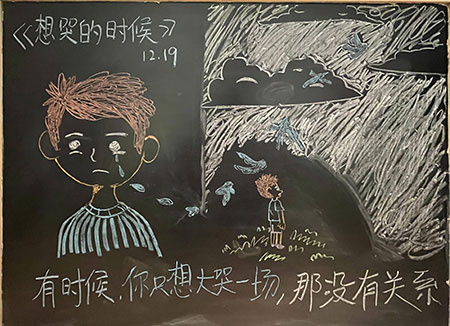 《想哭的时候》
12.19
有时候，你只想大哭一场，那没有关系